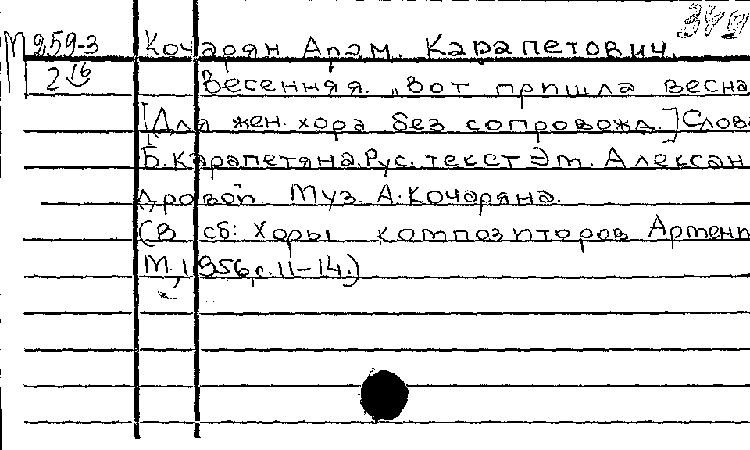 349
М 959-3 Кочарян Арам. Карапетович.
2 16 Весенняя. „Вот пришла весна
[Для жен. хора без сопровожд.] Слова
Б. Карапетяна. Рус. текст Эт. Алексан
дровой Муз. А. Кочаряна.
(В сб: Хоры композиторов Армени
М., 1956, с. 11-14.)